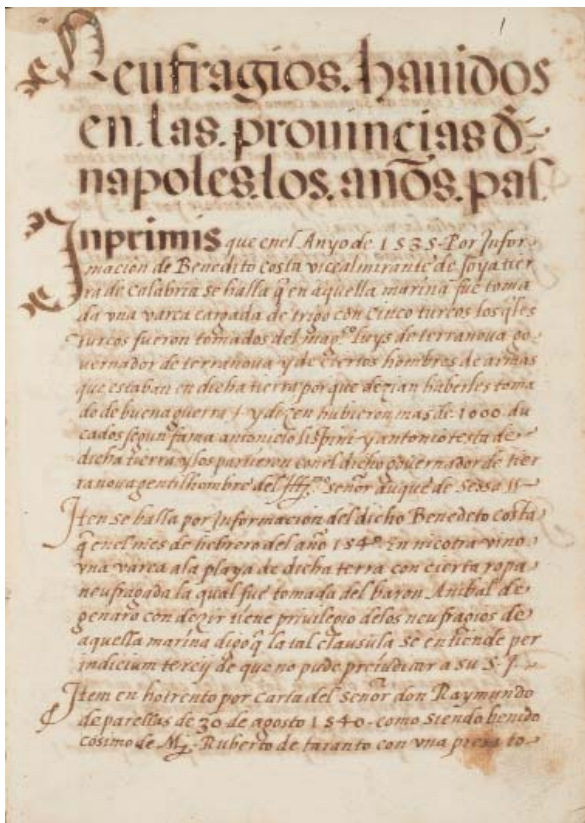 1
Neufragios. havidos
en. las. prouincias đ
napoles. los. años. pas.
Inprimis que enel Anyo de 1535. Por Infor-
macion de Benedito costa viçealmirante de Joya tier
ra de calabria se halla q̃ en aquella marina fue toma
da vna varca cargada de trigo con cinco turcos los q̃les
turcos fueron tomados del mag.co luys de terranoua go-
uernador de terranoua y de çiertos hombres de armas
que estaban en dicha tierra porque dezian haberles toma
do de buena guerra y dizen hubieron mas de 1000 du
cados segun fama antonielo y antonio testa de
dicha tierra y los partieron con el dicho gouernador de tier
ranoua gentilhombre del señor duque de sessa
Iten se halla por Informacion del dicho Benedeto costa
q̃ enel mes de hebrero del año 1540 En nicotra vino
vna varca ala playa de dicha terra con cierta ropa
neufragada la qual fue tomada del baron Anibal de
genaro con dezir tiene priuilegio delos neufragios de
aquella marina digo q̃ la tal clausula se entiende per
indicium de que no pude preiudicar a su S.
Item en hotrento por carta del señor don Raymundo
de parellas de 30 de agosto 1540. como siendo benido
cosimo de Ruberto de taranto con vna presa to-